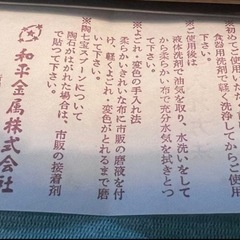 ※初めてご使用になる
食器用洗剤で軽く洗浄してからご使用
下さい。
※ご使用後は
液体洗剤で油気を取り、水洗いをして
から柔らかい布で充分水気を拭きとっ
て下さい。
※よごれ、変色の手入れ法
柔らかいきれいな布に市販の磨液を付
け、軽くよごれ、変色がとれるまで磨
いて下さい。
※陶七宝スプーンについて
陶石がはがれた場合は、市販の接着剤
で貼って下さい。
和平金属株式会社